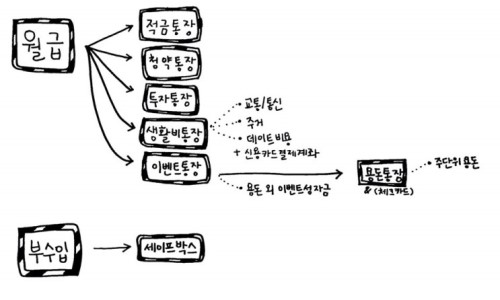 월급
적금통장
청약통장
투자통장
생활비통장
교통/통신
주거
데이트비용
+ 신용카드결제계좌
이벤트통장
용돈 외 이벤트성자금
용돈통장
& (체크카드)
주단위용돈
부수입
세이프박스